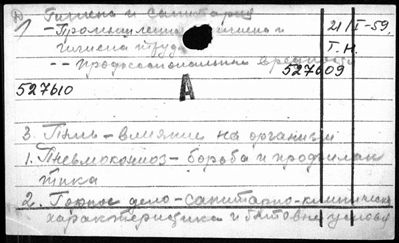 Гигиена и санитария
21/I-59.
- Промышленная гигиена и
гигиена труда
Т. Н.
-- Профессиональные вредности
527609
527610
А
3. Пыль - влияние на организм
1. Пневмокониоз - борьба и профилак
тика
2. Горное дело - санитарно-клиническ
характеристика и бытовые услов